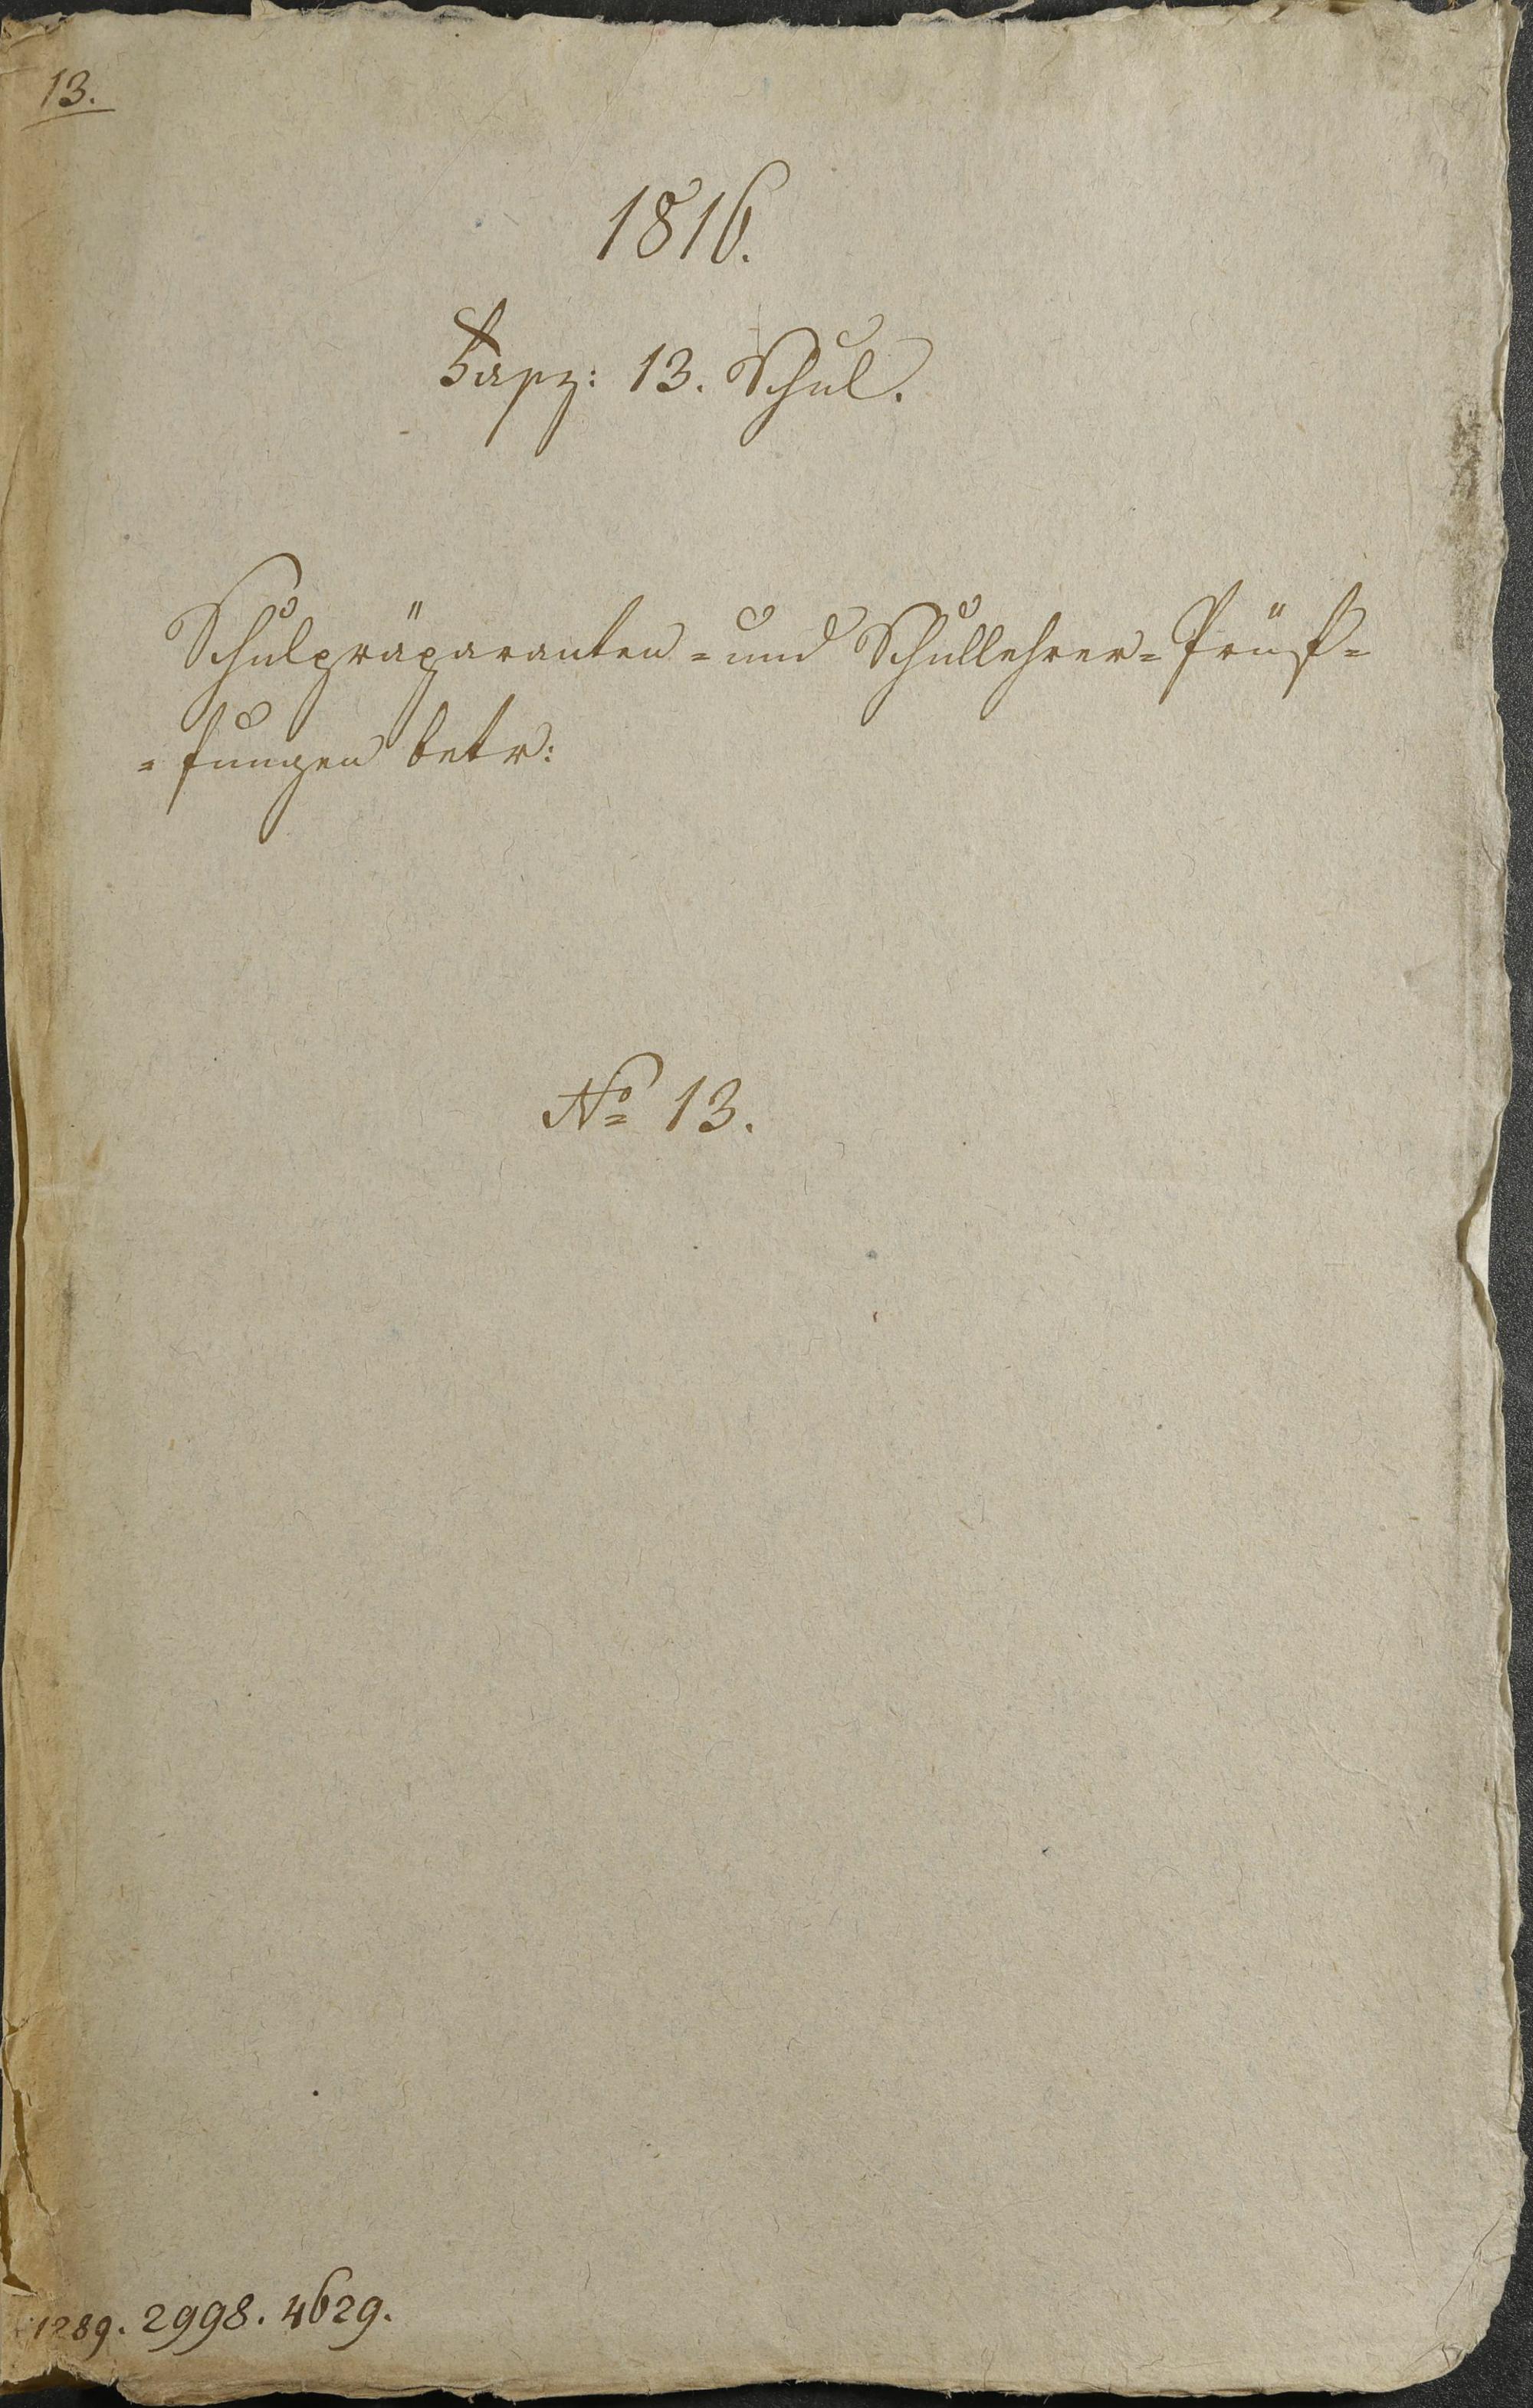 13.
1816.
Fasz: 13. Schul.
Schulpräparanten= und Schullehrer=Prüf=
=fungen betr:
No 13.
1289. 2998. 4629.